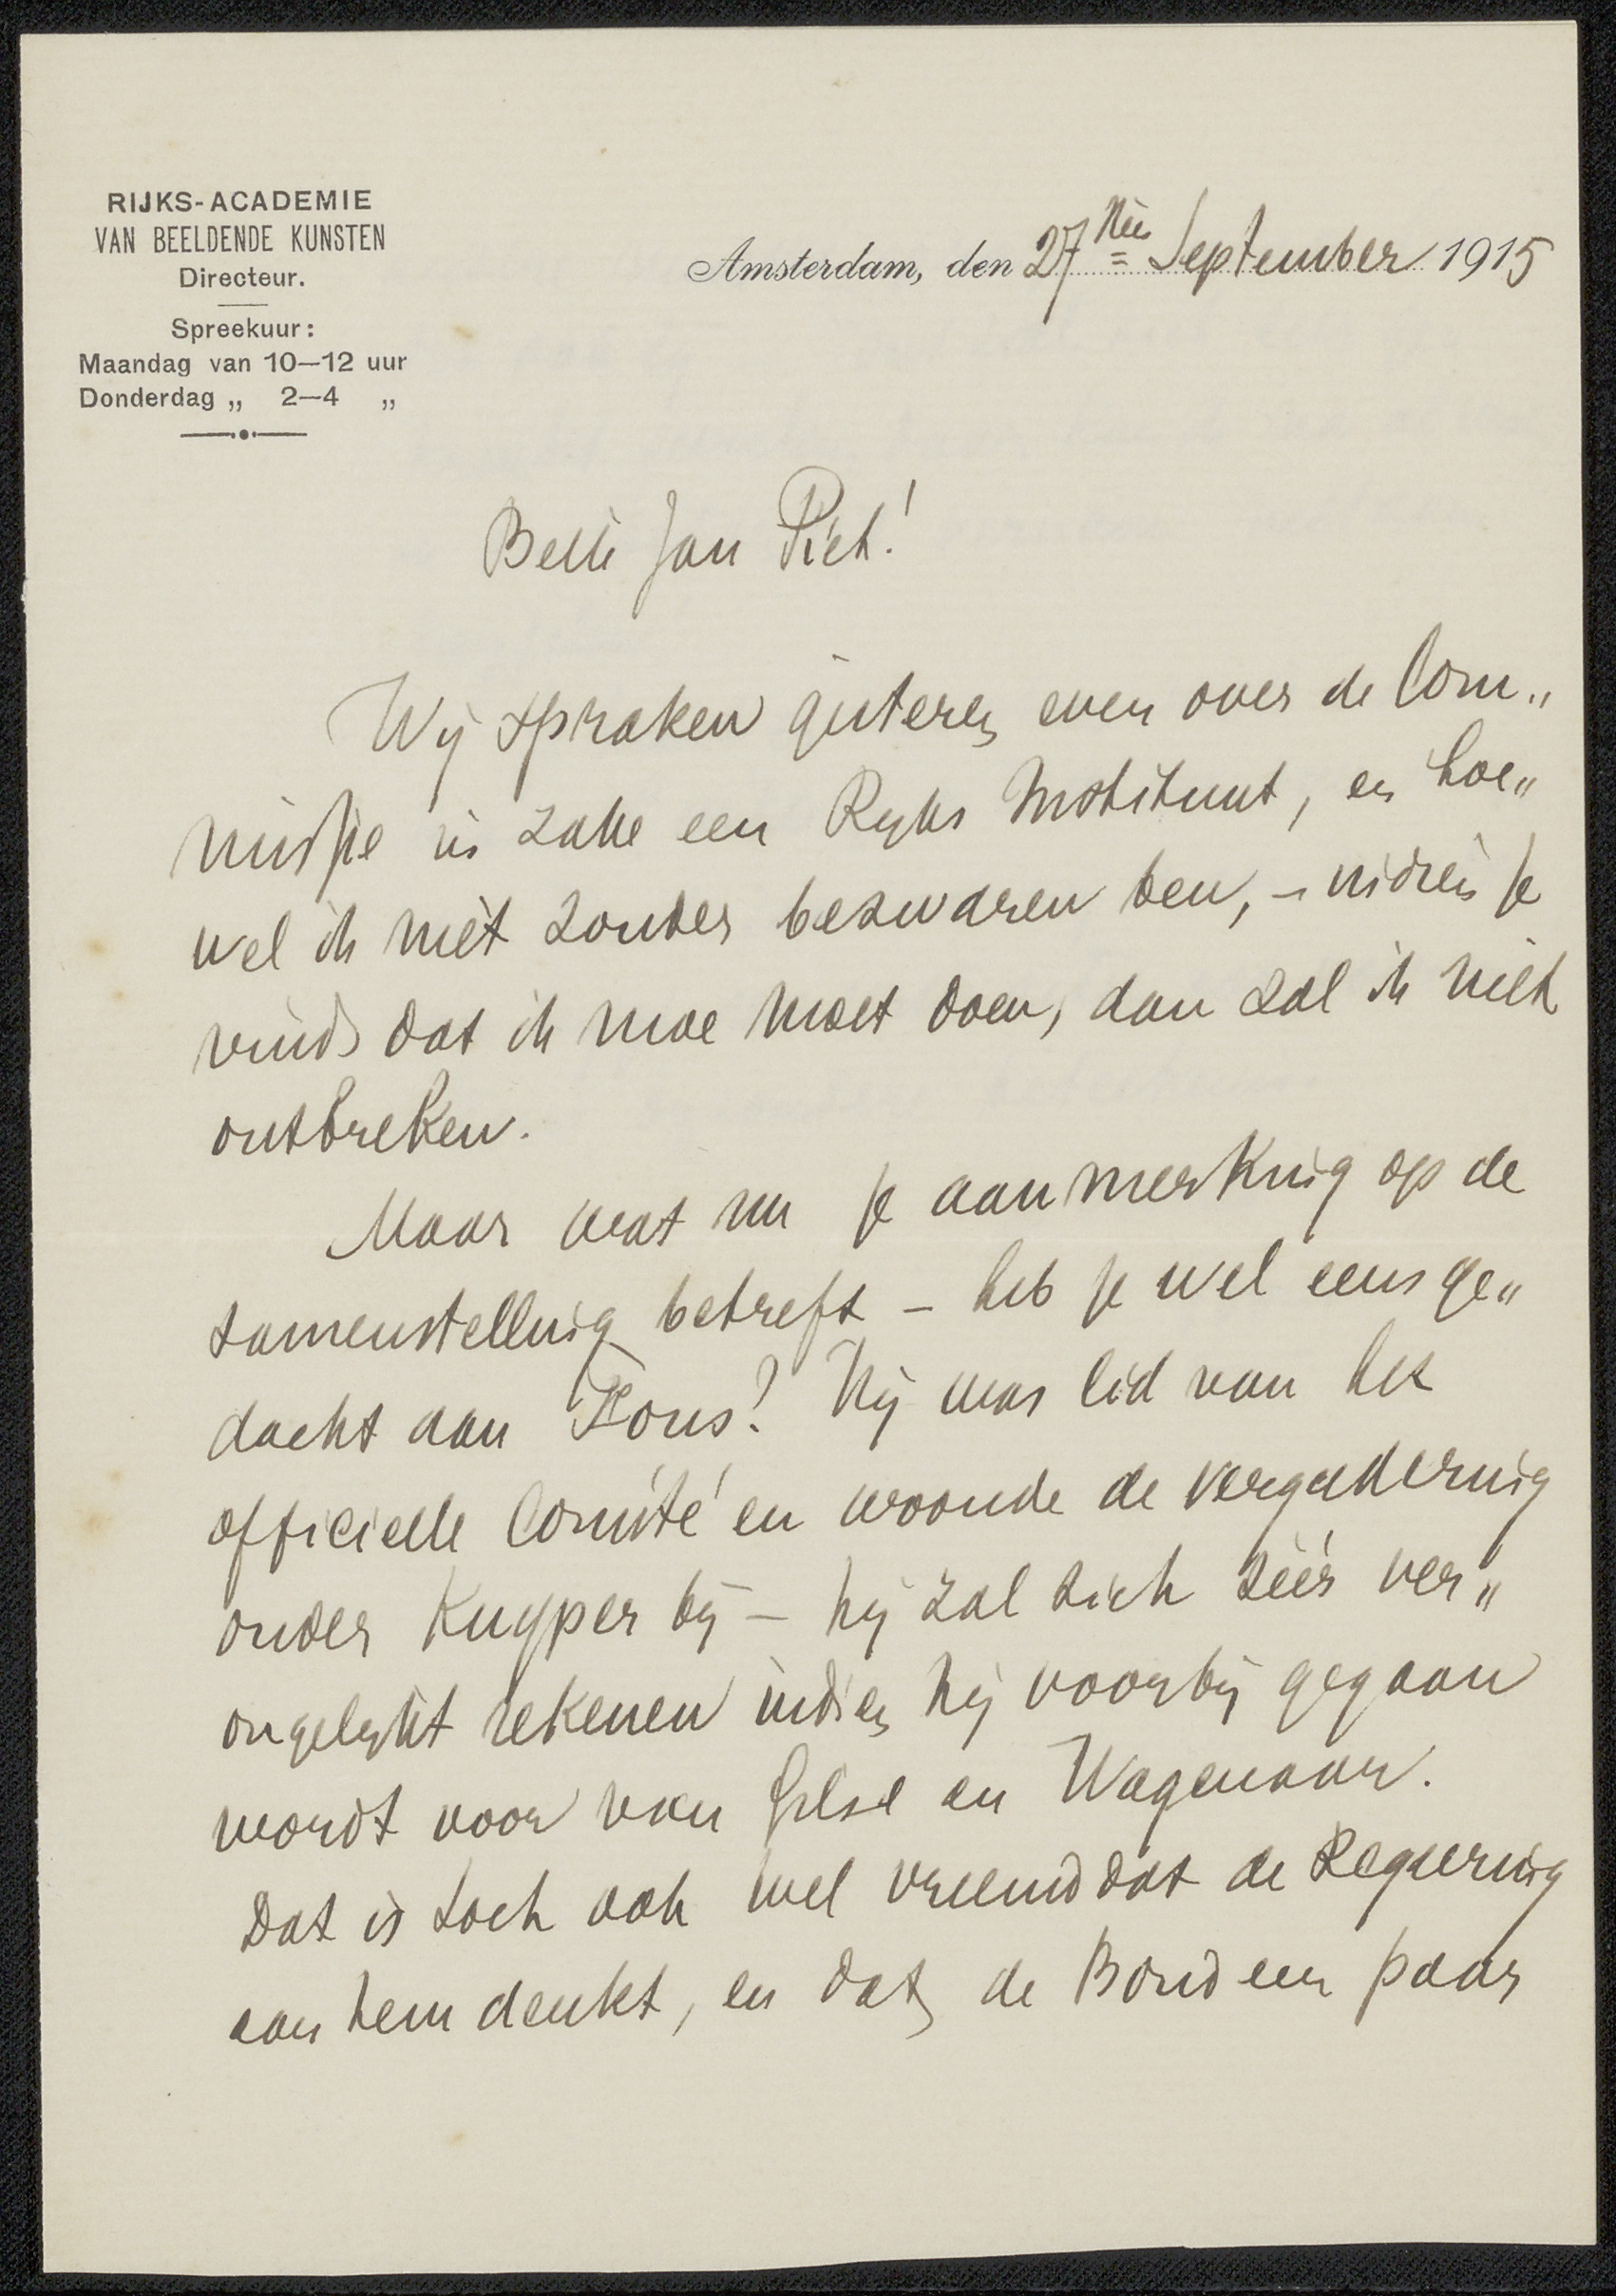 RIJKS-ACADEMIE
VAN BEELDENDE KUNSTEN
Directeur.
Spreekuur:
Maandag van 10—12 uur
Donderdag „ 2—4 „
Amsterdam, den 27sten September 1915
Beste Jan Piet!
Wij spraken gisteren even over de Com„
missie in zake een Ryks Instituut, en hoe„
wel ik niet zonder bezwaren ben, – indien je
vindt dat ik mee moet doen, dan zal ik niet
ontbreken.
Maar wat nu je aanmerking op de
samenstelling betreft – heb je wel eens ge„
dacht aan Zous? Hij was lid van het
officieele Comité en woonde de vergadering
onder Kuyper bij – hij zal zich zéér ver„
ongelykt rekenen indien hij voorbij gegaan
wordt voor van Gilse en Wagenaar.
Dat is toch ook wel vreemd dat de Regeering
aan hem denkt, en dat de Bond een paar